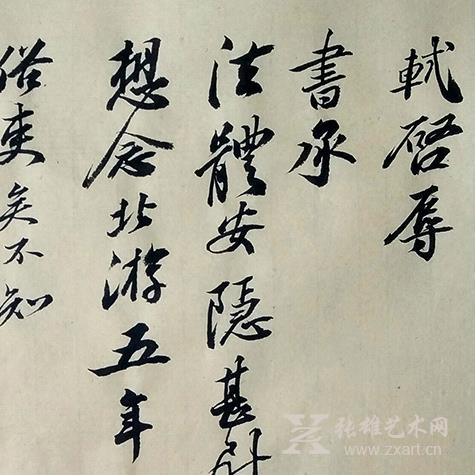 轼啓辱
書承
法體安隱甚慰
想念北游五年
俗吏矣不知
张雄艺术网
www.zxart.cn